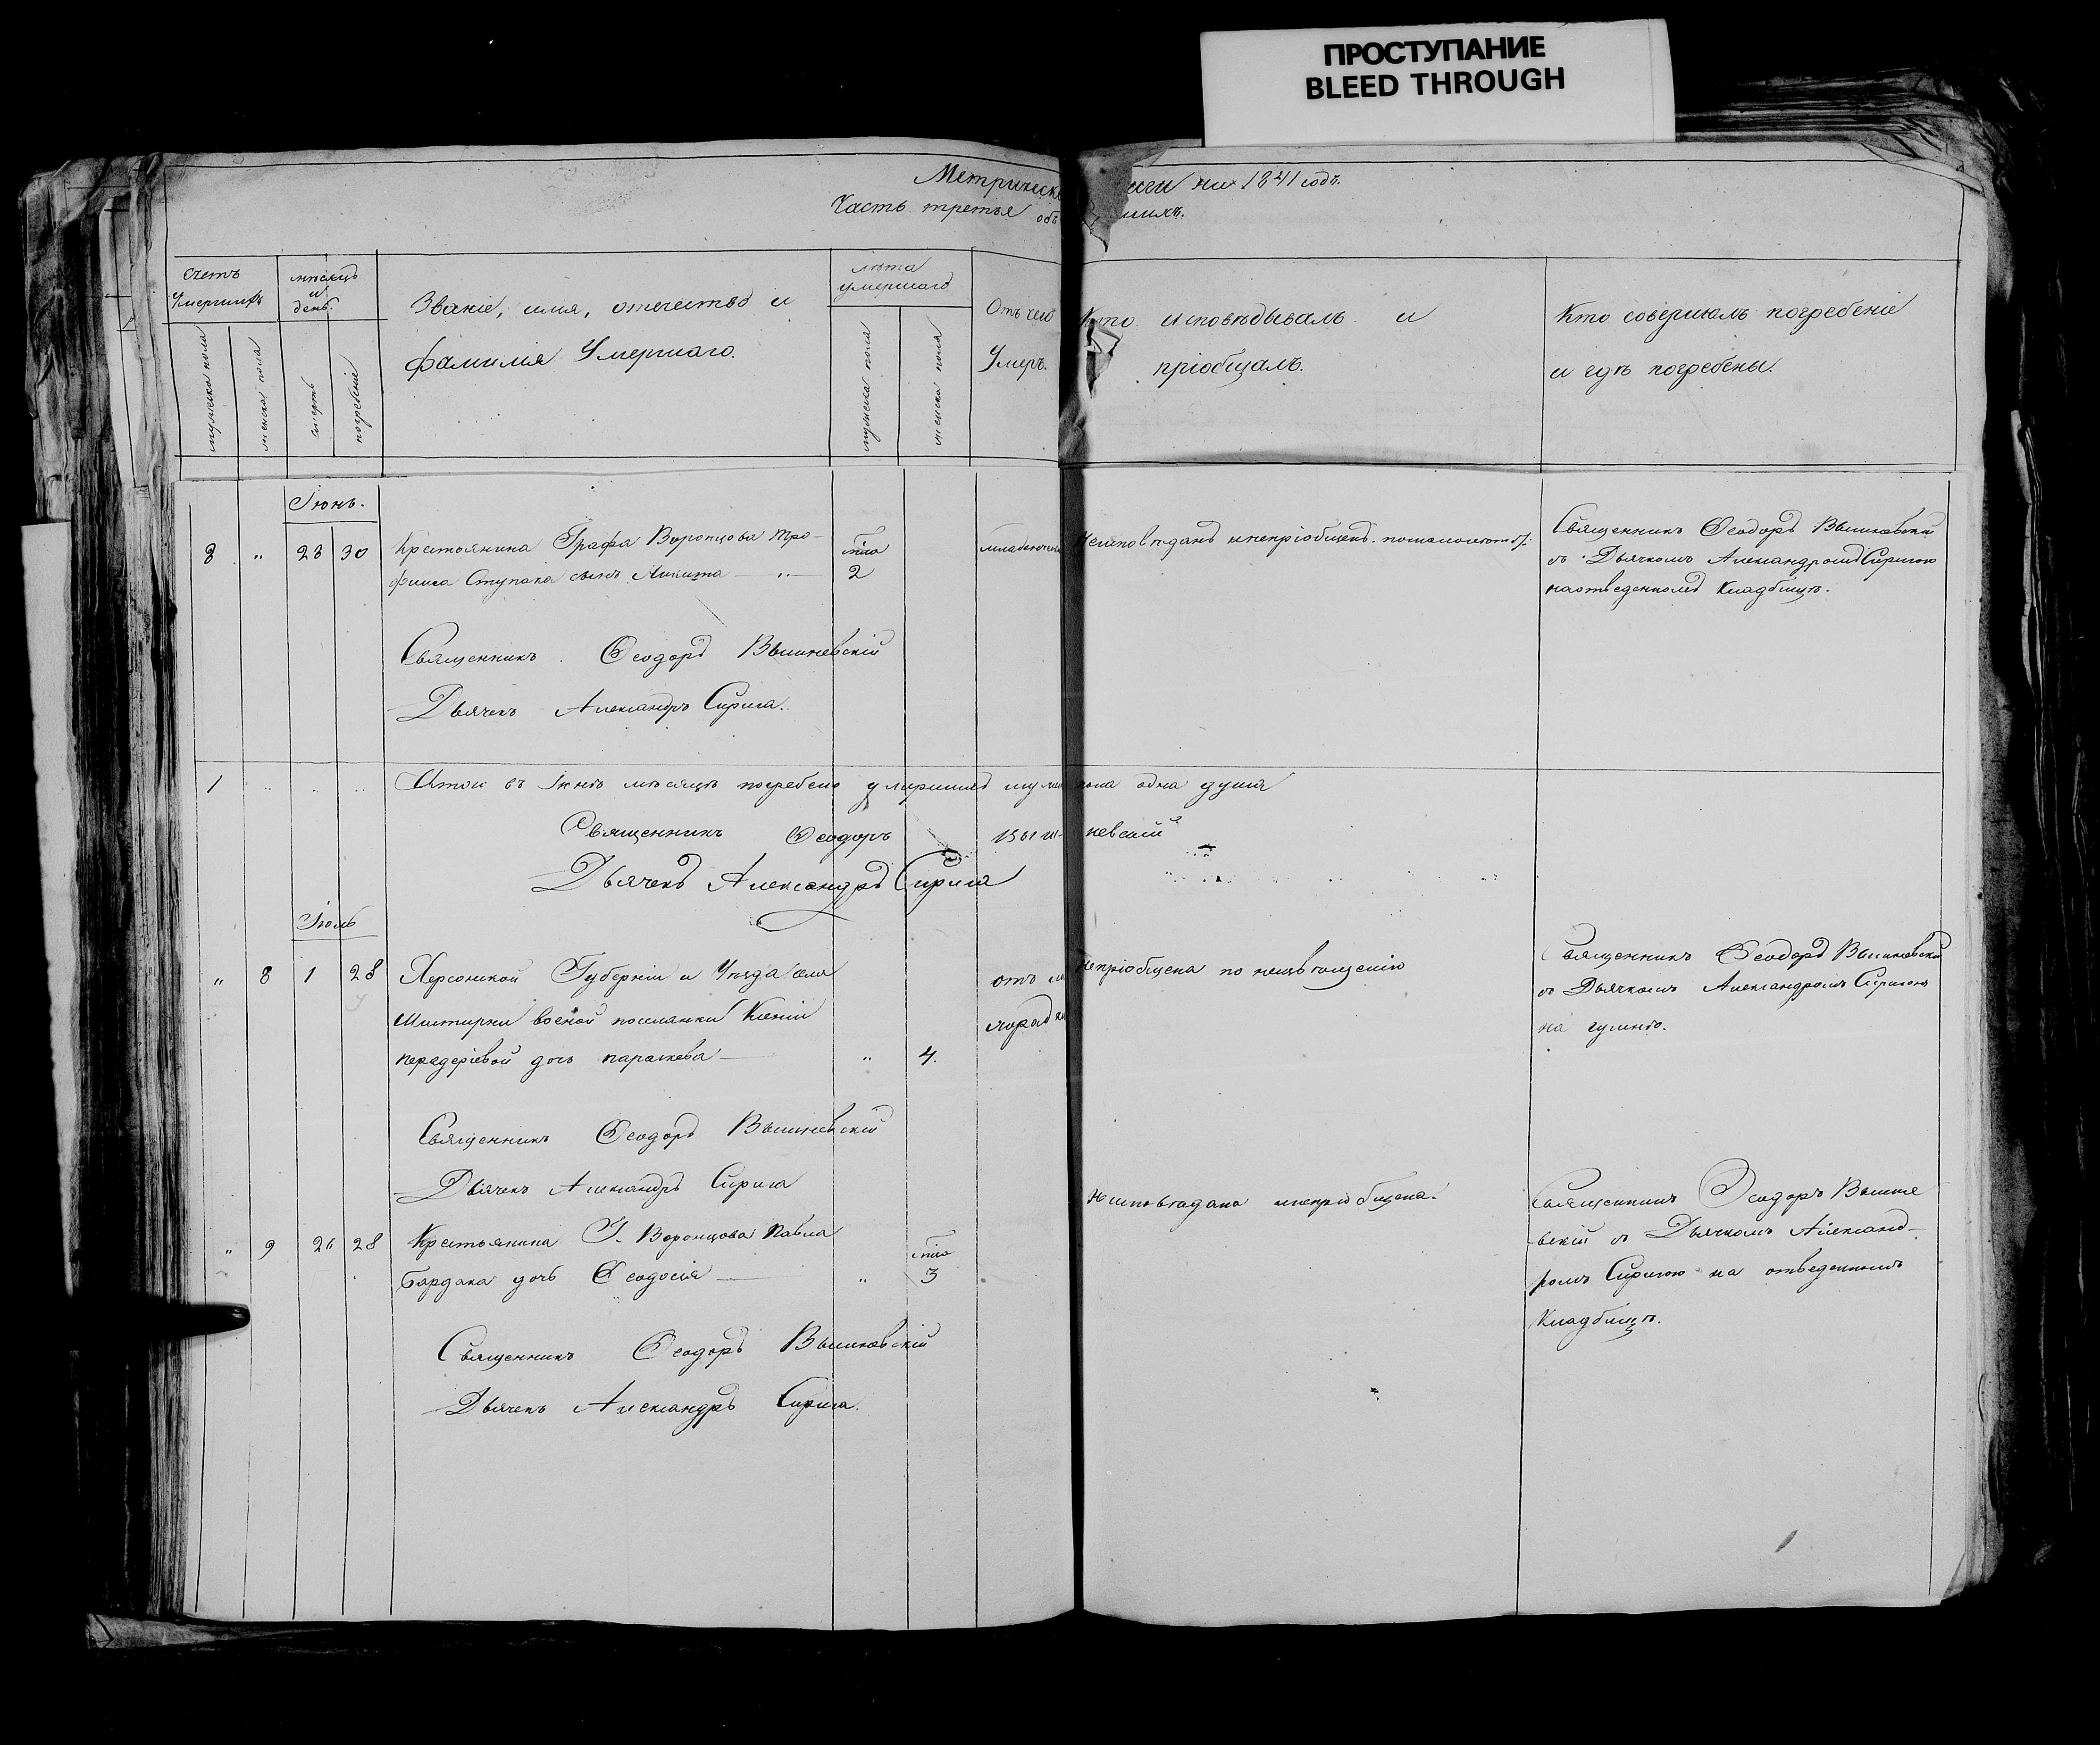 ПРОСТУПАНИЕ
BLEED THROUGH
Метрическ иги на 1841 годъ.
Часть третья объ шихъ.
счетъ Умершихъ
мужеска пола
женска пола
мѣсяцъ и день.
смерть
погребенiе
Званiе, имя, отечество и
фамилiя Умершаго.
лѣта умершаго
мужеска пола
женска пола
Отъ чего
Умеръ.
Кто исповѣдывалъ и
прiобщалъ.
Кто совершалъ погребенiе
и гдѣ погребены.
Iюнь.
8 " 28 30
Крестьянина Графа Воронцова Тро-
фима Ступака сынъ Никита — " —
2
Священникъ Ѳеодоръ Вышневскiй
съ Дьячкомъ Александромъ Сиригою
на отведенномъ Кладбищѣ.
Священникъ Ѳеодоръ Вышневскiй
Дьячекъ Александръ Сирига.
1 " " "
Итого въ Iюнѣ мѣсяцѣ погребено умершихъ муж пола одна душа
Священникъ Ѳеодоръ Выш-невскiй
Дьячекъ Александръ Сирига
Iюль
" 8 1 28
Херсонской Губернiи и Уѣзда села
военой поселянки Ксенiи
дочь параскева —
" 4.
отъ ли
хорадк
Непрiобщена по
Священникъ Ѳеодоръ Вышневскiй
съ Дьячкомъ Александромъ Сиригою
на
Священникъ Ѳеодоръ Вышневскiй
Дьячекъ Александръ Сирига
" 9 26 28
Крестьянина Г. Воронцова Павла
Бардака дочь Ѳеодосiя —
" 3
Неисповѣдана и непрiобщена.
Священникъ Ѳеодоръ Вышне
вскiй съ Дьячкомъ Александ-
ромъ Сиригою на отведенномъ
Кладбищѣ.
Священникъ Ѳеодоръ Вышневскiй
Дьячекъ Александръ Сирига.